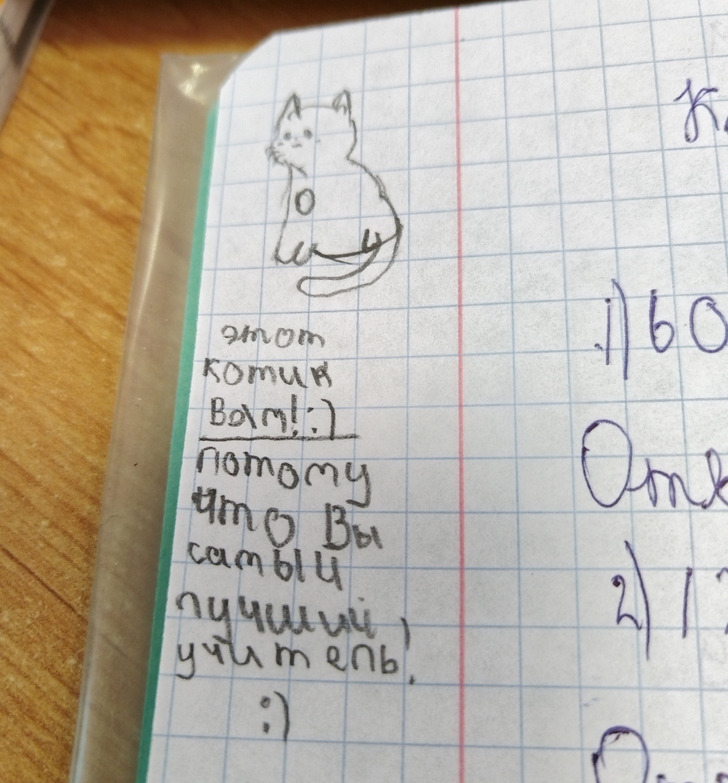 этот
котик
Вам! :)
потому
что Вы
самый
лучший
учитель!
:)
К
1) 60
Отв
2) 1